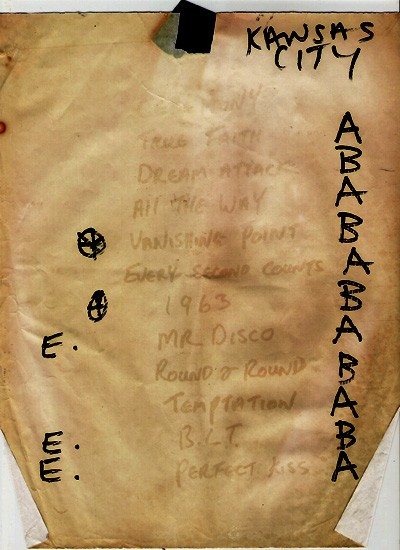 KANSAS
CITY
CEREMONY
TRUE FAITH A
DREAM ATTACK B
All THE WAY A
VANISHING POINT B
EVERY SECOND COUNTS A
1963 B
E. MR DISCO A
ROUND & ROUND B
TEMPTATION A
E. B.L.T. B
E. PERFECT KISS A